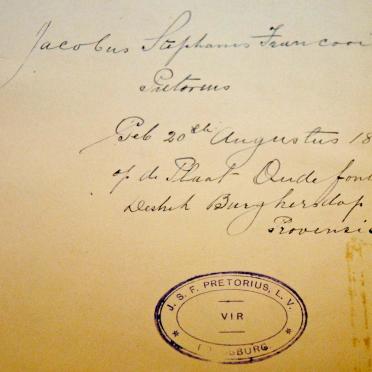 Jacobus Stephanus Francooi
Pretorius
Geb 20ste Augustus 18
op de Plaat Oude font
Destrik Burghersdorp
Provensie
J. S. F. PRETORIUS, L. V.
VIR